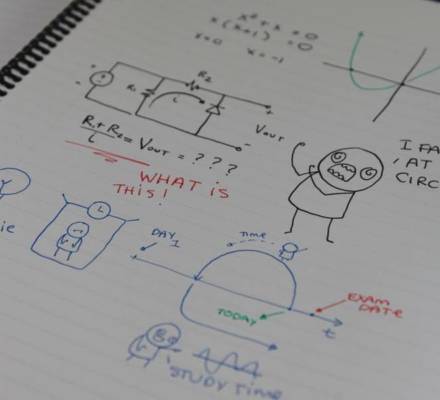 x² + x = 0
x(x+1) = 0
x=0 x=-1
R₂
R₁
+
-
i
+
-
Vout
R₁+R₂ = Vout = ???
i
WHAT IS
THIS!
I FA
AT
CIRC
ie
DAY
1
TIME
TODAY
EXAM
DATE
t
STUDY TIME